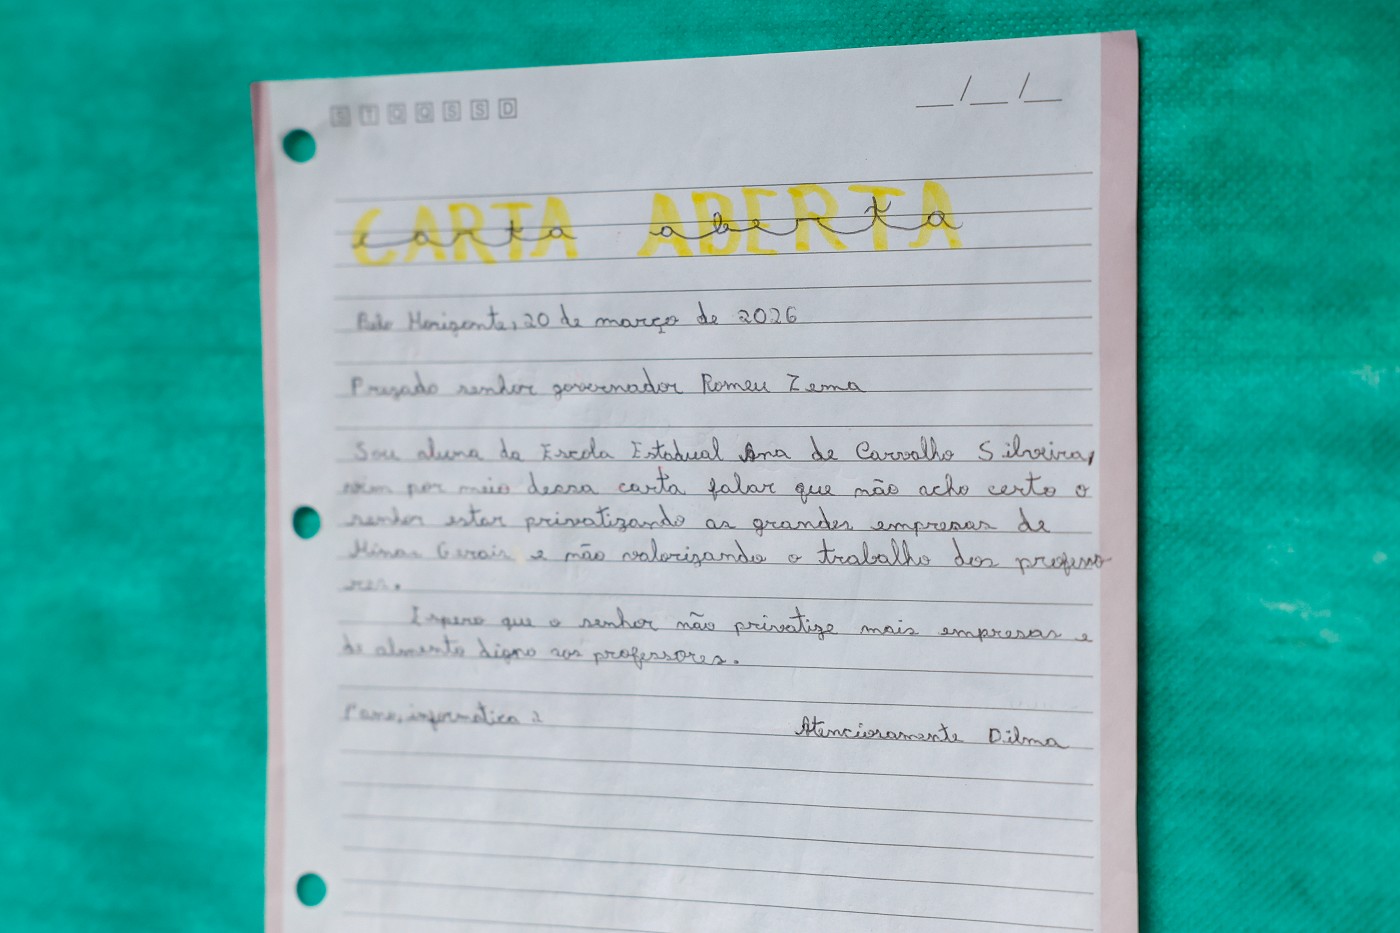 S T Q Q S S D
__/__/__
CARTA ABERTA
carta aberta
Belo Horizonte, 20 de março de 2026
Prezado senhor governador Romeu Zema
Sou aluna da Escola Estadual Ana de Carvalho Silveira,
vim por meio dessa carta falar que não acho certo o
senhor estar privatizando as grandes empresas de
Minas Gerais e não valorizando o trabalho dos professo
res.
Espero que o senhor não privatize mais empresas e
de almento digno aos professores.
informática 2
Atenciosamente Dilma